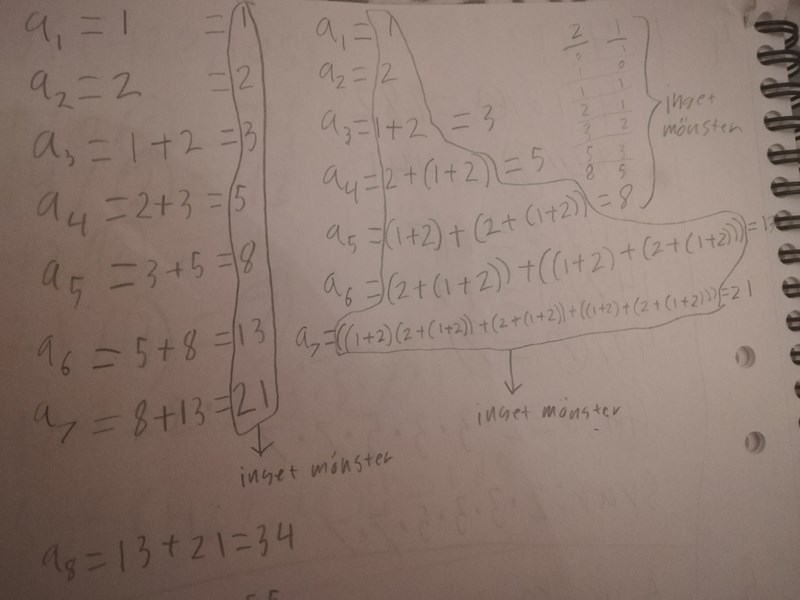 a₁ = 1 = 1
a₂ = 2 = 2
a₃ = 1+2 = 3
a₄ = 2+3 = 5
a₅ = 3+5 = 8
a₆ = 5+8 = 13
a₇ = 8+13 = 21
inget mönster
a₈ = 13+21 = 34
a₁ = 1
a₂ = 2
a₃ = 1+2 = 3
a₄ = 2+(1+2) = 5
a₅ = (1+2)+(2+(1+2)) = 8
a₆ = (2+(1+2))+((1+2)+(2+(1+2))) = 13
a₇ = ((1+2)(2+(1+2))+(2+(1+2))+((1+2)+(2+(1+2))) = 21
inget mönster
2 1
0 1
1 0
1 1
2 1
3 2
5 3
8 5
inget
mönster